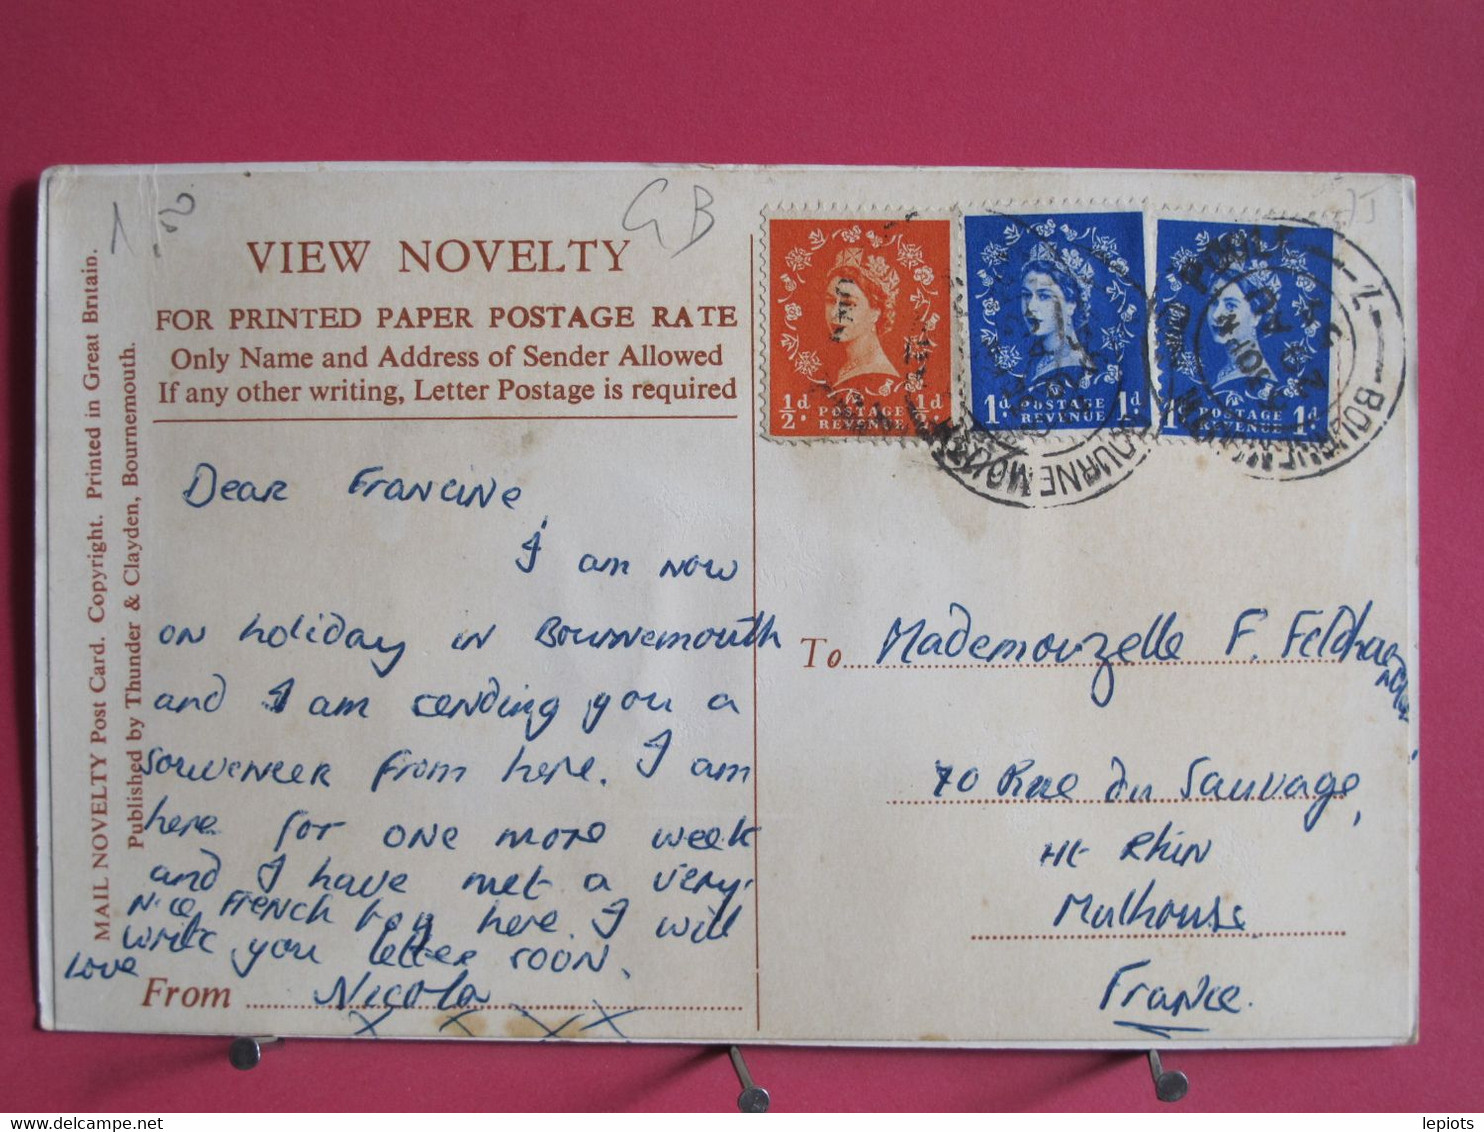 1.50
GB
VIEW NOVELTY
FOR PRINTED PAPER POSTAGE RATE
Only Name and Address of Sender Allowed
If any other writing, Letter Postage is required
MAIL NOVELTY Post Card. Copyright. Printed in Great Britain.
Published by Thunder & Clayden, Bournemouth.
Dear Francine,
I am now
on holiday in Bournemouth
and I am sending you a
souveneer from here. I am
here for one more week
and I have met a very
nice French boy here. I will
write you letter soon.
Love
From Nicola
x x x x
½d. ½d.
POSTAGE
REVENUE
1d. 1d.
POSTAGE
REVENUE
1d. 1d.
POSTAGE
REVENUE
BOURNEMOUTH
BOURNEMOUTH
To Mademouzelle F. Feldhao
70 Rue du Sauvage,
Ht Rhin
Mulhouse
France.
delcampe.net
lepiots